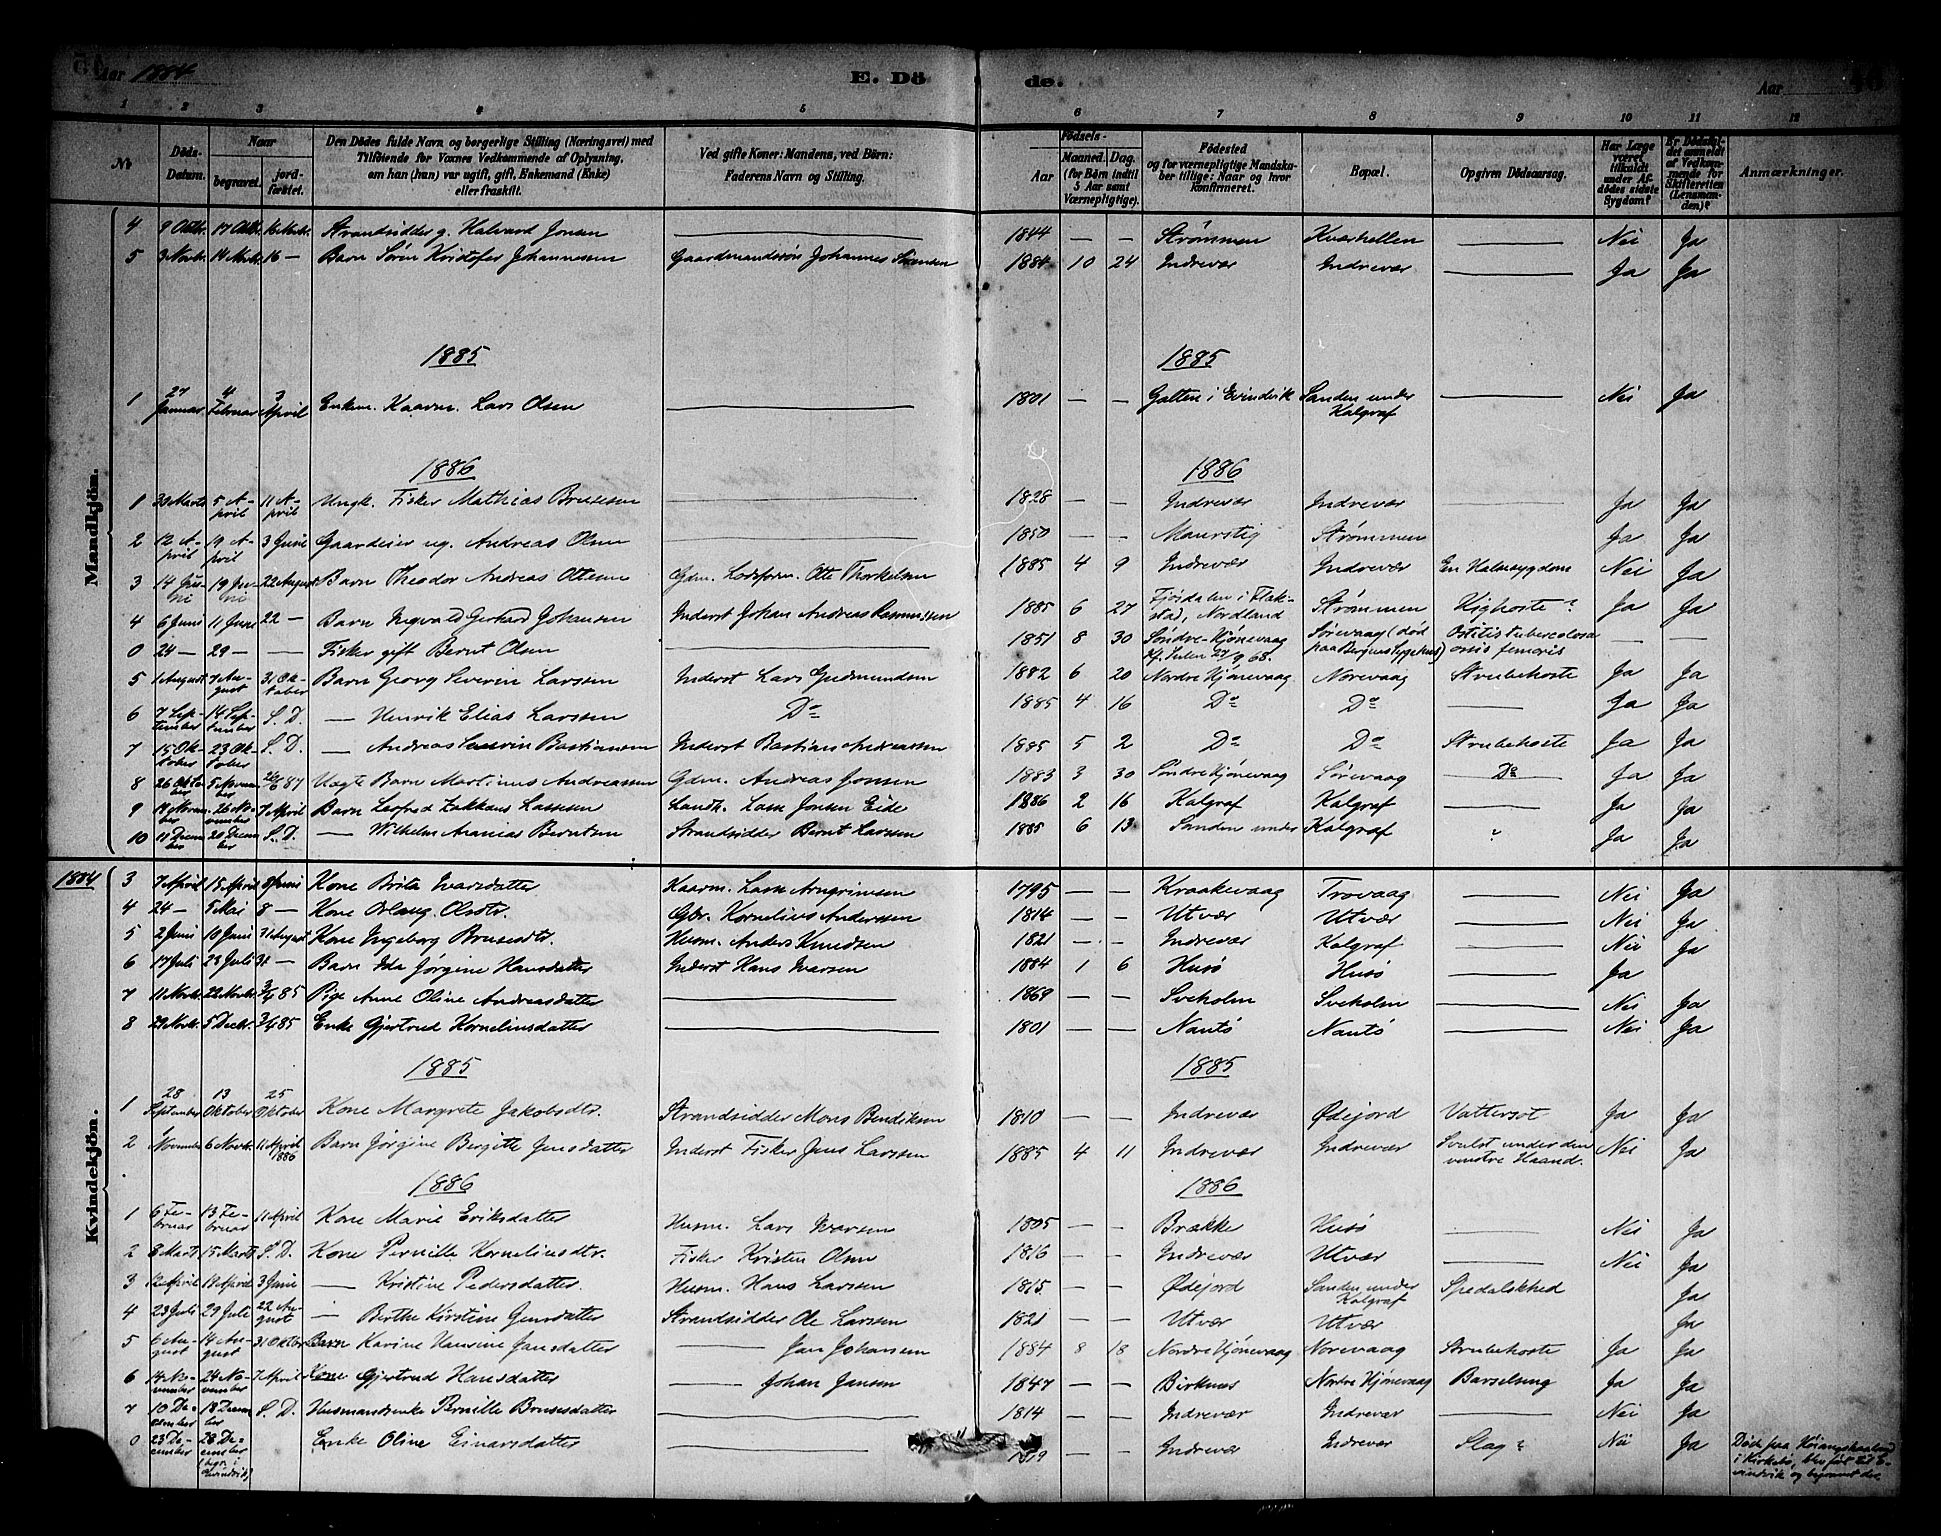 Aar 1884 E. Dö de. Aar
1 2 3 4 5 6 7 8 9 10 11 12
No Döds-Datum. Naar begravet. jordfæstet. Den Dödes fulde Navn og borgerlige Stilling (Næringsvei) med Tilföiende for Voxnes Vedkommende af Oplysning, om han (hun) var ugift, gift, Enkemand (Enke) eller fraskilt. Ved gifte Koner: Mandens, ved Börn: Faderens Navn og Stilling. Födsels- Aar Maaned. Dag. (for Börn indtil 5 Aar samt Værnepligtige). Födested og for værnepligtige Mandskaber tillige: Naar og hvor konfirmeret. Bopæl. Opgiven Dödsaarsag. Har Læge været tilkaldt under Afdödes sidste Sygdom? Er Dödsfaldet anmeldt af Vedkommende for Skifteretten (Lensmanden)? Anmærkninger.
Mandkjön.
4 9 Oktbr. 17 Oktbr. Strandsidder g. Halvard Jonsen 1844 — — Strømmen Kværhellen Nei Ja
5 3 Novbr. 14 Novbr. 16 — Barn Søren Kristofer Johannesen Gaardmandssøn Johannes Sørensen 1884 10 24 Indrevær Indrevær Ja Ja
1885 1885
1 27 Januar 4 Februar 3 April Enkem. Kaarm. Lars Olsen 1801 — — Galten i Evindvik Sanden under Kalgraf Nei Ja
1886 1886
1 30 Marts 5 April 11 April Ungk. Fisker Mathias Brusesen 1828 — — Indrevær Indrevær Ja Ja
2 12 April 19 April 3 Juni Gaardeier ug. Andreas Olsen 1850 — — Maurstig Strømmen Ja Ja
3 14 Juni 19 Juni 22 August Barn Theodor Andreas Ottesen Gdm. Lodsform. Otte Thorkelsen 1885 4 9 Indrevær Indrevær En Halssygdom Nei Ja
4 6 Juni 11 Juni 22 — Barn Ingvald Gerhard Johansen Inderst Johan Andreas Rasmussen 1885 6 27 Fjøsdalen i Flakstad, Nordland Strømmen Kighoste ? Ja Ja
0 24 — 29 — — Fisker gift Bernt Olsen 1851 8 30 Søndre-Hjønevaag Kf. Sulen 27/9 68. Sørevaag (død paa Bergens Sygehus) Ostitis tuberculosa ossis femoris — —
5 1 August 7 August 31 Oktober Barn Georg Severin Larssen Inderst Lars Gudmundsen 1882 6 20 Nordre Hjønevaag Norevaag Strubehoste Ja Ja
6 7 September 14 September S. D. — Henrik Elias Larssen Do 1885 4 16 Do Do Ja Ja
7 15 Oktober 23 Oktober S. D. — Andreas Severin Bastiansen Inderst Bastian Andreassen 1885 5 2 Do Do Strubehoste Ja Ja
8 26 Oktober 5 November 26/6 87 Uægte Barn Martinus Andreassen Gdm. Andreas Jonsen 1883 3 30 Søndre Hjønevaag Sørevaag Do Ja Ja
9 19 November 26 November 7 April Barn Leofred Zakkæus Lassesen Landh. Lasse Jonsen Eide 1886 2 16 Kalgraf Kalgraf Ja Ja
10 11 December 20 December S. D. — Wilhelm Ananias Berntsen Strandsidder Bernt Larssen 1885 6 13 Sanden under Kalgraf ? Ja Ja
Kvindekjön.
1884 3 7 April 15 April 8 Juni Kone Brita Ivarsdatter Kaarm. Lasse Arngrimsen 1795 — — Kraakevaag Trovaag Nei Ja
4 24 — 5 Mai 8 — Kone Orlaug Olsdtr. Gbr. Kornelius Anderssen 1814 — — Utvær Utvær Nei Ja
5 2 Juni 10 Juni 31 August Kone Ingeborg Brusesdtr. Husm. Anders Knudsen 1821 — — Indrevær Kalgraf Nei Ja
6 17 Juli 23 Juli 31 — Barn Ida Jørgine Hansdatter Inderst Hans Ivarsen 1884 1 6 Husø Husø Ja
7 11 Novbr. 22 Novbr. 3/4 85 Pige Anne Oline Andreasdatter 1869 — — Sveholm Sveholm Nei Ja
8 29 Novbr. 5 Decbr. 3/4 85 Enke Gjertrud Korneliusdatter 1801 — — Nautø Nautø Nei Ja
1885 1885
1 28 September 13 Oktober 25 Oktober Kone Margrete Jakobsdtr. Strandsidder Mons Bendiksen 1810 — — Indrevær Ødejord Vattersot Ja Ja
2 1 November 6 Novbr. 11 April 1886 Barn Jørgine Bergitte Jensdatter Inderst Fisker Jens Larssen 1885 4 11 Indrevær Indrevær Svulst under den venstre Haand. Nei Ja
1886 1886
1 6 Februar 13 Februar 11 April Kone Marie Eriksdatter Husm. Lars Ivarsen 1805 — — Brække Husø Nei Ja
2 8 Marts 15 Marts S. D. Kone Pernille Korneliusdtr. Fisker Kristen Olsen 1816 — — Indrevær Utvær Nei Ja
3 12 April 19 April 3 Juni — Kristine Pedersdatter Husm. Hans Larssen 1815 — — Ødejord Sanden under Kalgraf Spedalskhed Ja
4 23 Juli 29 Juli 22 August — Berthe Kirstine Jensdatter Strandsidder Ole Larssen 1821 — — Utvær Utvær Ja
5 6 August 14 August 31 Oktober Barn Karine Hansine Jansdatter — Jan Johansen 1884 8 18 Nordre Hjønevaag Norevaag Strubehoste Ja Ja
6 14 November 24 November 7 April Kone Gjertrud Hansdatter — Johan Jansen 1847 — — Birknes Nordre Hjønevaag Barselseng Ja Ja
7 10 December 18 December S. D. Husmandsenke Pernille Brusesdatter 1814 — — Indrevær Indrevær Nei Ja
0 23 December 28 December (begr. i Evindvik) Enke Oline Einarsdatter 1819 Indrevær Indrevær Slag ? Nei Ja Døde paa i Kirkebø, blev ført til Evindvik og begravet der.